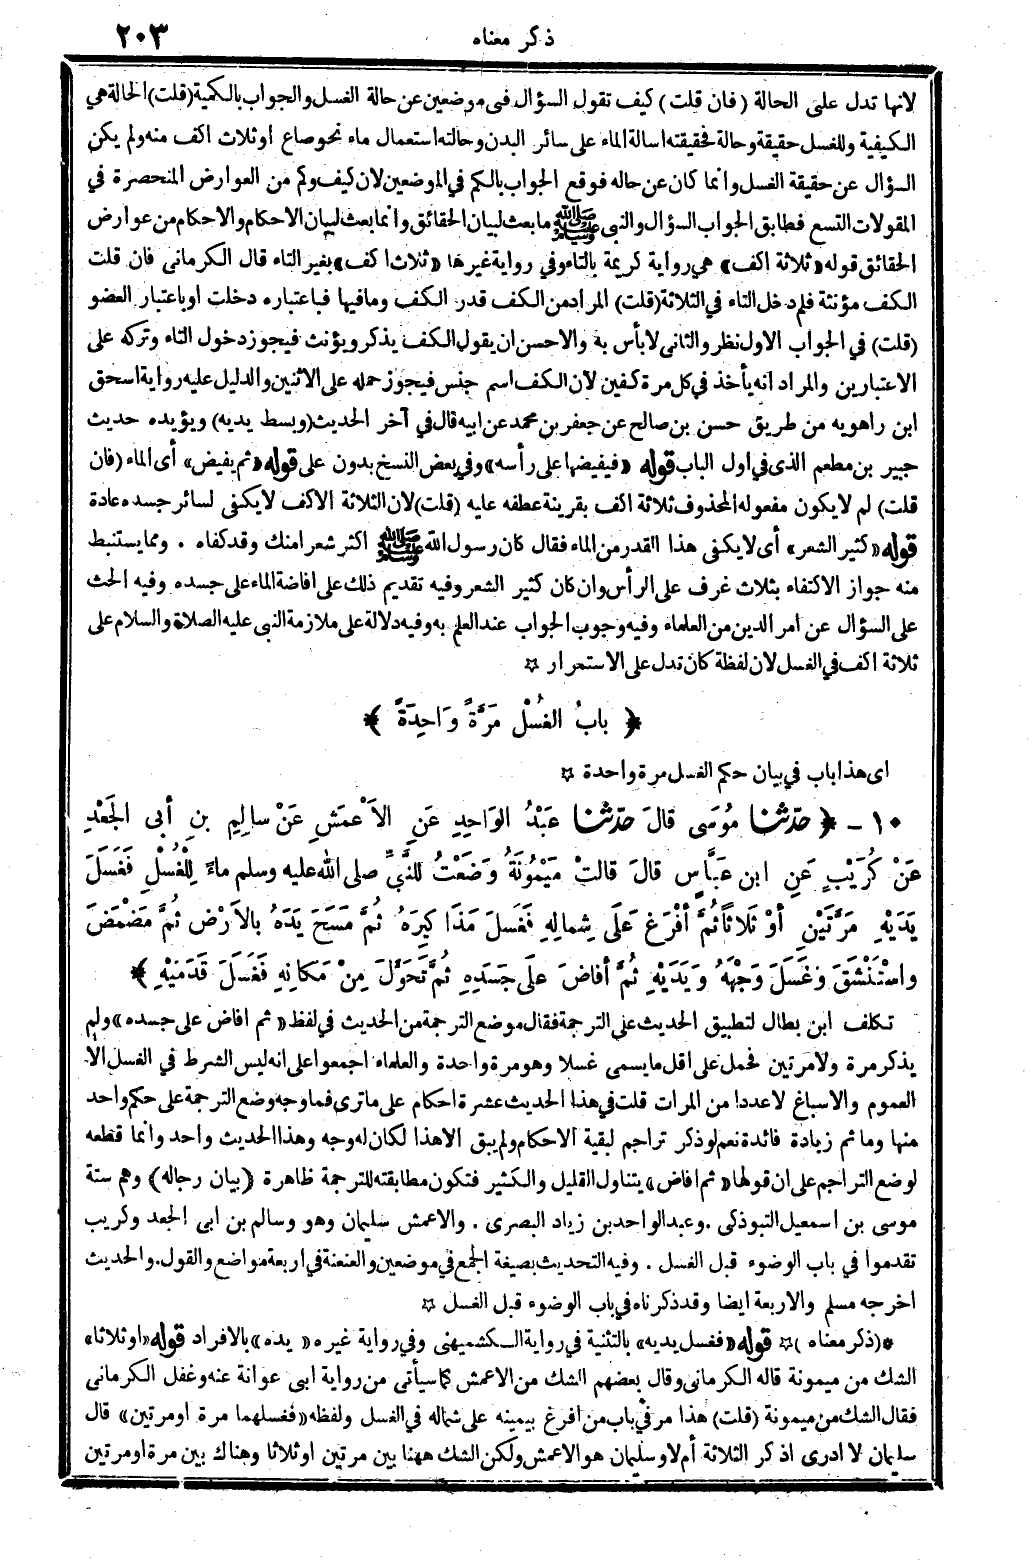 ذكر معناه ٢٠٣
لانها تدل على الحالة (فان قلت) كيف تقول السؤال فى موضعين عن حالة الغسل والجواب بالكمية (قلت) الحالة هي
الكيفية وللغسل حقيقة وحالة فحقيقته اسالة الماء على سائر البدن وحالته استعمال ماء نحو صاع او ثلاث اكف منه ولم يكن
السؤال عن حقيقة الغسل وانما كان عن حاله فوقع الجواب بالكم في الموضعين لان كيف وكم من العوارض المنحصرة في
المقولات التسع فطابق الجواب السؤال والنبى ﷺ ما بعث لبيان الحقائق وانما بعث لبيان الاحكام والاحكام من عوارض
الحقائق قوله «ثلاثة اكف» هي رواية كريمة بالتاء وفي رواية غيرها «ثلاث اكف» بغير التاء قال الكرمانى فان قلت
الكف مؤنثة فلم دخل التاء في الثلاثة (قلت) المراد من الكف قدر الكف وما فيها فباعتباره دخلت او باعتبار العضو
(قلت) في الجواب الاول نظر والثانى لا بأس به والاحسن ان يقول الكف يذكر ويؤنث فيجوز دخول التاء وتركه على
الاعتبارين والمراد انه يأخذ في كل مرة كفين لان الكف اسم جنس فيجوز حمله على الاثنين والدليل عليه رواية اسحق
ابن راهويه من طريق حسن بن صالح عن جعفر بن محمد عن ابيه قال في آخر الحديث (وبسط يديه) ويؤيده حديث
جبير بن مطعم الذى في اول الباب قوله «فيفيضها على رأسه» وفي بعض النسخ بدون على قوله «ثم يفيض» أى الماء (فان
قلت) لم لا يكون مفعوله المحذوف ثلاثة اكف بقرينة عطفه عليه (قلت) لان الثلاثة الاكف لا يكفى لسائر جسده عادة
قوله «كثير الشعر» أى لا يكفى هذا القدر من الماء فقال كان رسول الله ﷺ اكثر شعر امنك وقد كفاه . ومما يستنبط
منه جواز الاكتفاء بثلاث غرف على الرأس وان كان كثير الشعر وفيه تقديم ذلك على افاضة الماء على جسده وفيه الحث
على السؤال عن امر الدين من العلماء وفيه وجوب الجواب عند العلم به وفيه دلالة على ملازمة النبى عليه الصلاة والسلام على
ثلاثة اكف في الغسل لان لفظة كان تدل على الاستمرار ☆
﴿ بابُ الغُسْلِ مَرَّةً وَاحِدَةً ﴾
اى هذا باب في بيان حكم الغسل مرة واحدة ☆
١٠ - ﴿ حدّثنا مُوسَى قالَ حدّثنا عَبْدُ الوَاحِدِ عَنِ الأَعْمَشِ عَنْ سالِمِ بنِ أبى الجَعْدِ
عَنْ كُرَيْبٍ عَنِ ابنِ عَبَّاسٍ قالَ قالتْ مَيْمُونَةُ وَضَعْتُ للنَّبىِّ صلى الله عليه وسلم ماءً لِلْغُسْلِ فَغَسَلَ
يَدَيْهِ مَرَّتَيْنِ أوْ ثَلاثًا ثُمَّ أفْرَغَ عَلَى شِمالِهِ فَغَسَلَ مَذَاكِيرَهُ ثُمَّ مَسَحَ يَدَهُ بالأَرْضِ ثُمَّ مَضْمَضَ
واسْتَنْشَقَ وغَسَلَ وَجْهَهُ وَيَدَيْهِ ثُمَّ أفاضَ علَى جَسَدِهِ ثُمَّ تَحَوَّلَ مِنْ مَكانِهِ فَغَسَلَ قَدَمَيْهِ ﴾
تكلف ابن بطال لتطبيق الحديث على الترجمة فقال موضع الترجمة من الحديث في لفظ «ثم افاض على جسده» ولم
يذكر مرة ولا مرتين فحمل على اقل ما يسمى غسلا وهو مرة واحدة والعلماء اجمعوا على انه ليس الشرط في الغسل الا
العموم والاسباغ لا عددا من المرات قلت في هذا الحديث عشرة احكام على ما ترى فما وجه وضع الترجمة على حكم واحد
منها وما ثم زيادة فائدة نعم لو ذكر تراجم لبقية الاحكام ولم يبق الا هذا لكان له وجه وهذا الحديث واحد وانما قطعه
لوضع التراجم على ان قولها «ثم افاض» يتناول القليل والكثير فتكون مطابقته للترجمة ظاهرة (بيان رجاله) وهم ستة
موسى بن اسمعيل التبوذكى . وعبد الواحد بن زياد البصرى . والاعمش سليمان وهو وسالم بن ابى الجعد وكريب
تقدموا في باب الوضوء قبل الغسل . وفيه التحديث بصيغة الجمع في موضعين والعنعنة في اربعة مواضع والقول . والحديث
اخرجه مسلم والاربعة ايضا وقد ذكرناه في باب الوضوء قبل الغسل ☆
* (ذكر معناه) ☆ قوله «فغسل يديه» بالتثنية في رواية الكشميهنى وفي رواية غيره «يده» بالافراد قوله «او ثلاثا»
الشك من ميمونة قاله الكرمانى وقال بعضهم الشك من الاعمش كما سيأتى من رواية ابى عوانة عنه وغفل الكرمانى
فقال الشك من ميمونة (قلت) هذا مر في باب من افرغ بيمينه على شماله في الغسل ولفظه «فغسلهما مرة او مرتين» قال
سليمان لا ادرى اذكر الثلاثة أم لا وسليمان هو الاعمش ولكن الشك ههنا بين مرتين او ثلاثا وهناك بين مرة او مرتين